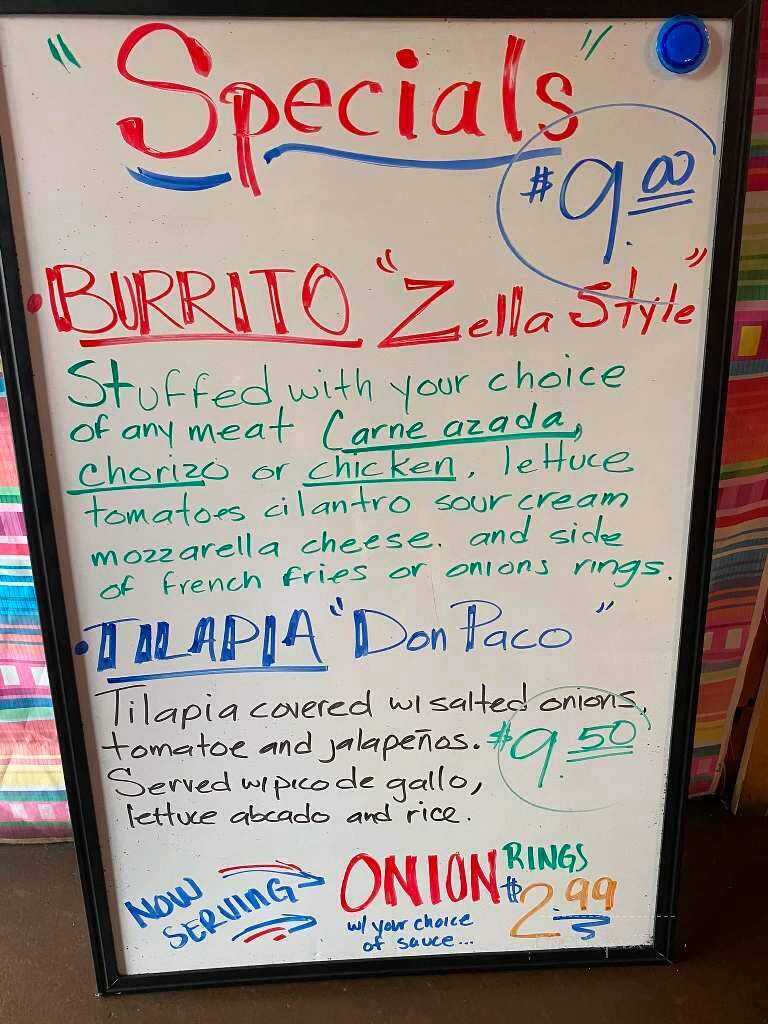 "Specials"
$9.00
• BURRITO "Zella Style"
Stuffed with your choice
of any meat Carne azada,
chorizo or chicken, lettuce
tomatoes cilantro sour cream
mozzarella cheese. and side
of french fries or onions rings.
• TILAPIA "Don Paco"
Tilapia covered w/ salted onions,
tomatoe and jalapeños. $9.50
Served w/ pico de gallo,
lettuce abcado and rice.
NOW SERVING
ONION RINGS $2.99
w/ your choice
of sauce...